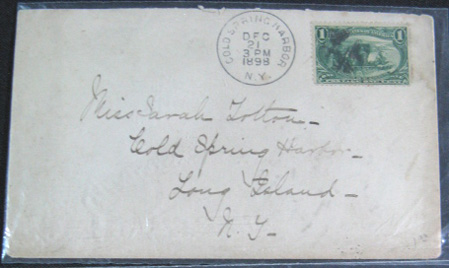 COLD SPRING HARBOR
DEC
21
3 PM
1898
N.Y.
1 1
Miss Sarah Totton
Cold Spring Harbor
Long Island
N. Y.